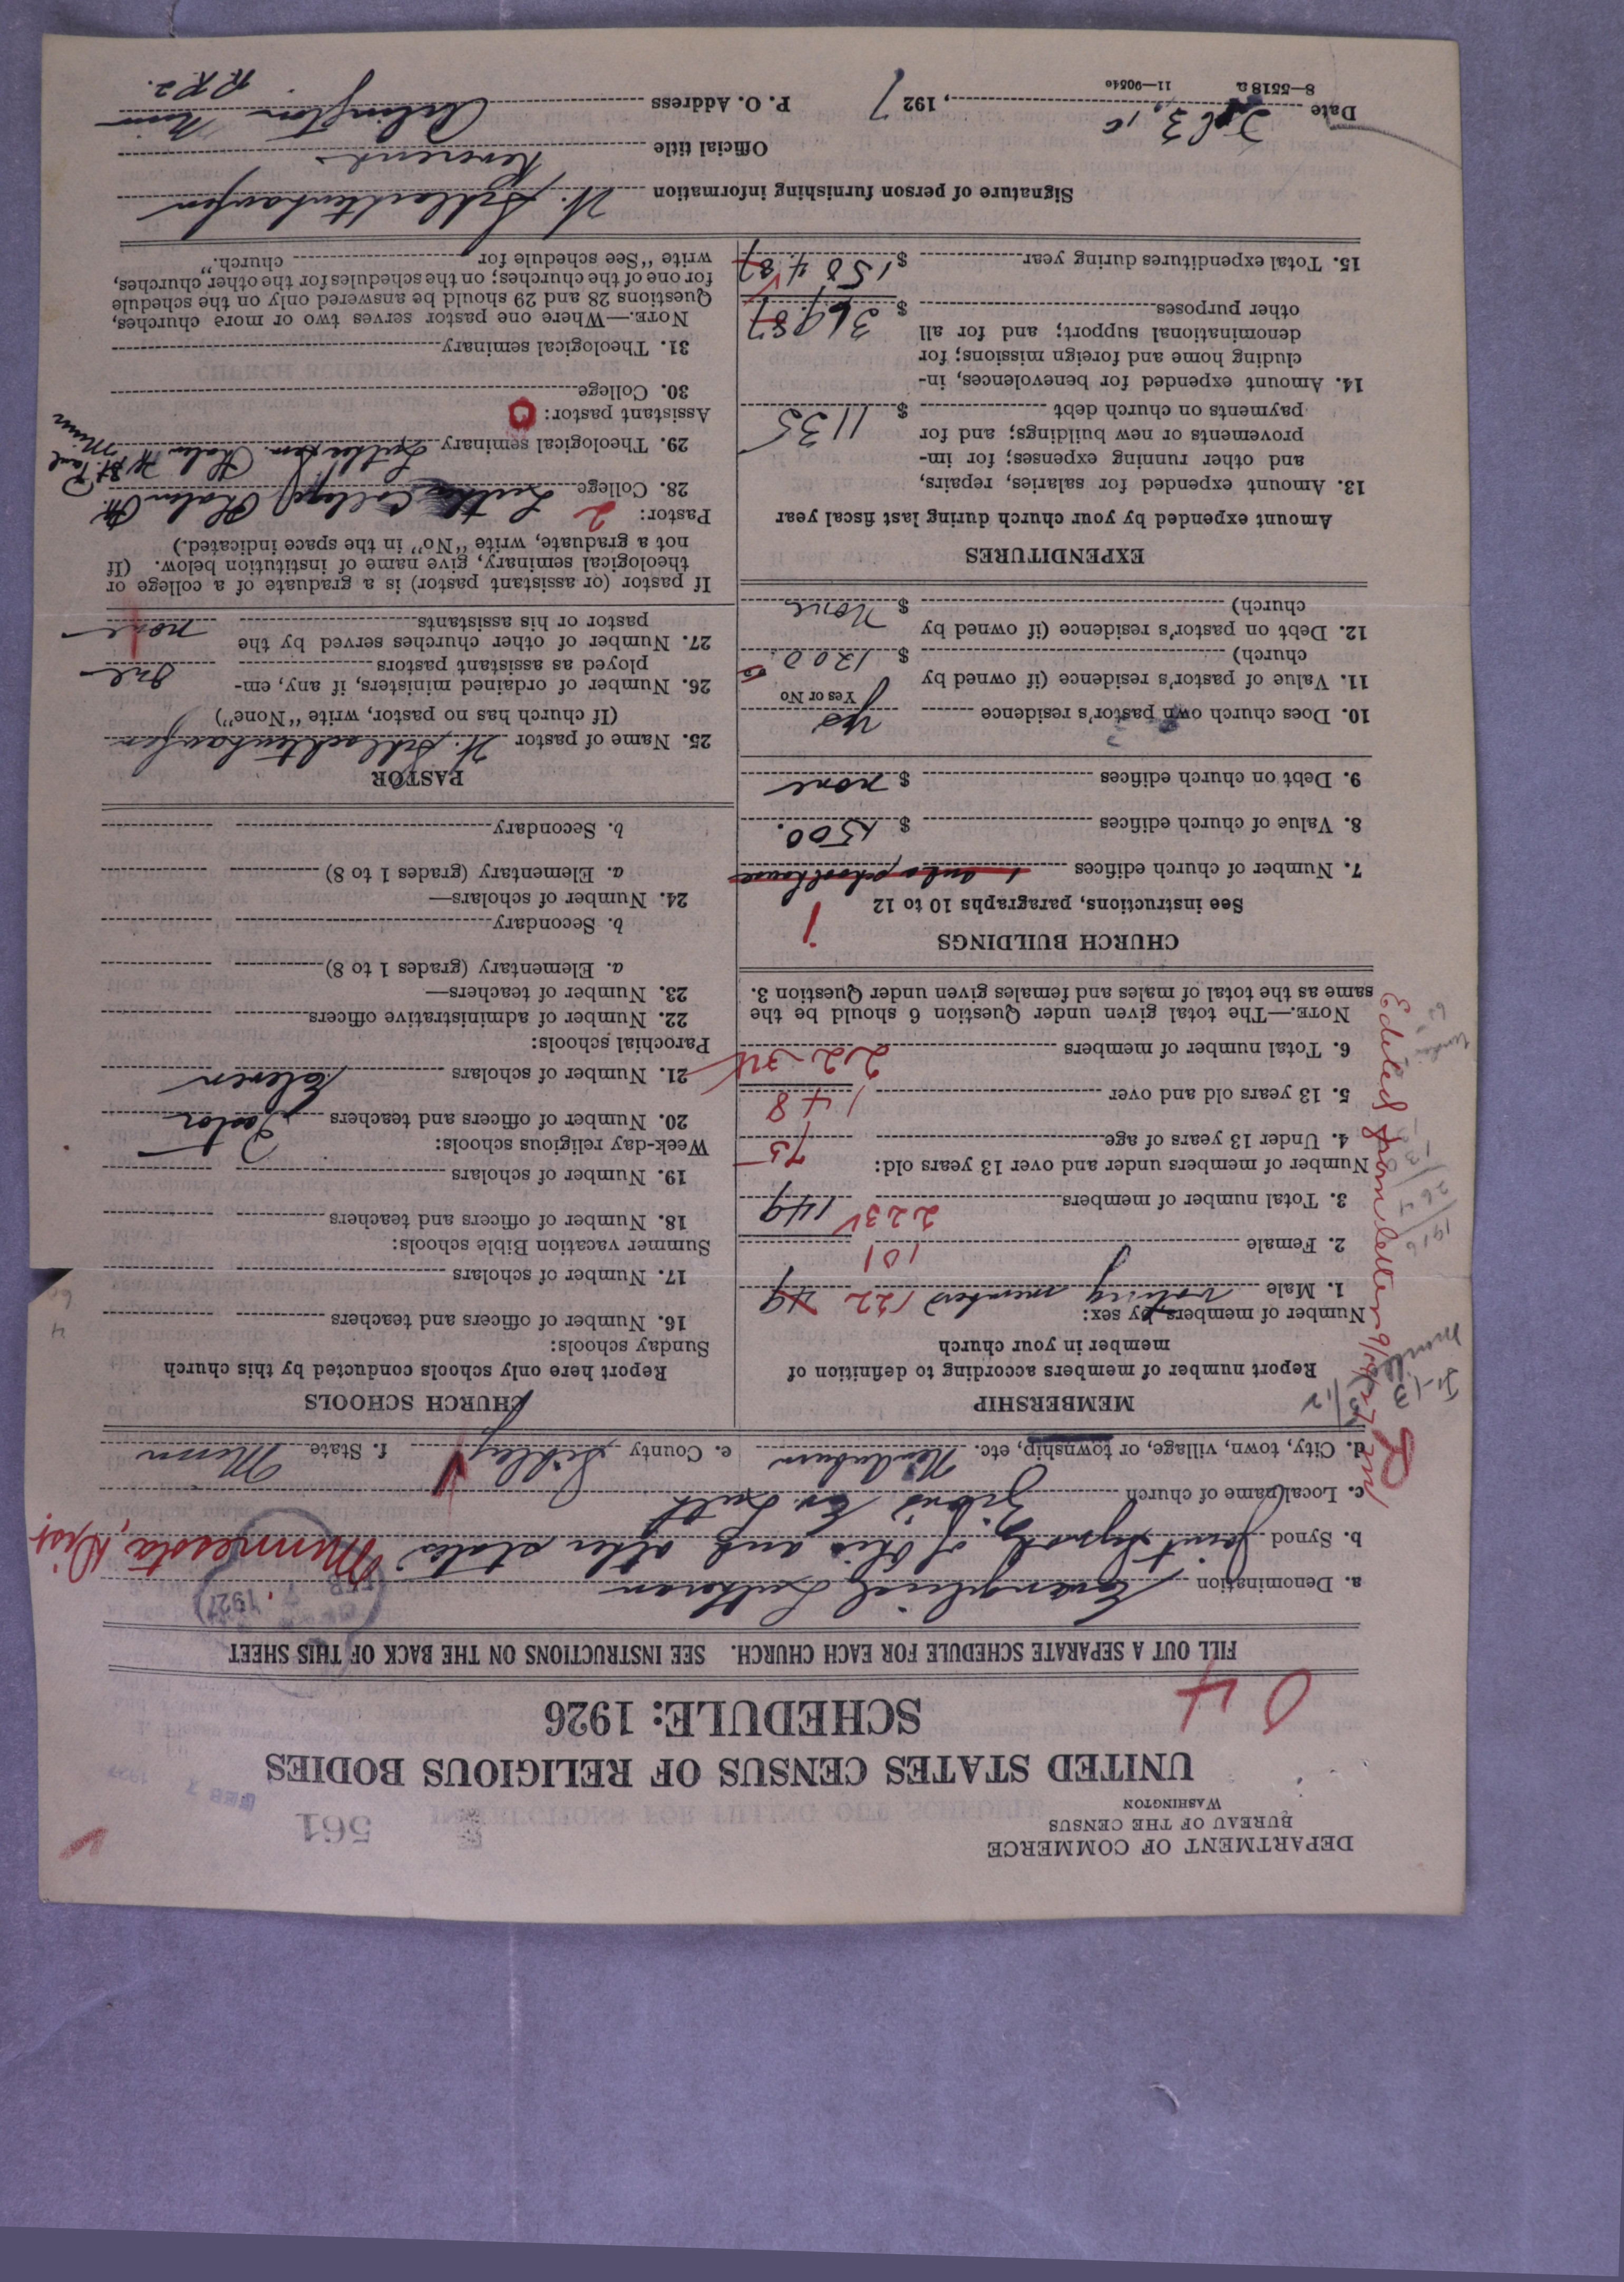 DEPARTMENT OF COMMERCE
BUREAU OF THE CENSUS
WASHINGTON
561
FEB 7 1927
UNITED STATES CENSUS OF RELIGIOUS BODIES
SCHEDULE: 1926
04
FILL OUT A SEPARATE SCHEDULE FOR EACH CHURCH. SEE INSTRUCTIONS ON THE BACK OF THIS SHEET
a. Denomination Evangelical Lutheran
b. Synod Joint Synod of Ohio and other states Minnesota Dist.
c. Local name of church Zion's Ev. Luth
d. City, town, village, or township, etc. e. County Sibley f. State Minn
MEMBERSHIP
Report number of members according to definition of
member in your church
Number of members by sex:
1. Male voting members 122 49
2. Female 101
3. Total number of members 223 149
Number of members under and over 13 years old:
4. Under 13 years of age 75
5. 13 years old and over 148
6. Total number of members
NOTE.—The total given under Question 6 should be the
same as the total of males and females given under Question 3.
Edited from letter
CHURCH BUILDINGS
See instructions, paragraphs 10 to 12
7. Number of church edifices 1
8. Value of church edifices $ 1500.
9. Debt on church edifices $ none
10. Does church own pastor's residence yes
Yes or No
11. Value of pastor's residence (if owned by
church) $ 1200.
12. Debt on pastor's residence (if owned by
church) $ None
EXPENDITURES
Amount expended by your church during last fiscal year
13. Amount expended for salaries, repairs,
and other running expenses; for im-
provements or new buildings; and for
payments on church debt $ 1135
14. Amount expended for benevolences, in-
cluding home and foreign missions; for
denominational support; and for all
other purposes $ 369.87
15. Total expenditures during year $ 1504.87
CHURCH SCHOOLS
Report here only schools conducted by this church
Sunday schools:
16. Number of officers and teachers
17. Number of scholars
Summer vacation Bible schools:
18. Number of officers and teachers
19. Number of scholars
Week-day religious schools:
20. Number of officers and teachers Pastor
21. Number of scholars eleven
Parochial schools:
22. Number of administrative officers
23. Number of teachers—
a. Elementary (grades 1 to 8)
b. Secondary
24. Number of scholars—
a. Elementary (grades 1 to 8)
b. Secondary
PASTOR
25. Name of pastor W. Schlachtenhaufen
(If church has no pastor, write "None")
26. Number of ordained ministers, if any, em-
ployed as assistant pastors One
27. Number of other churches served by the
pastor or his assistants none
If pastor (or assistant pastor) is a graduate of a college or
theological seminary, give name of institution below. (If
not a graduate, write "No" in the space indicated.)
Pastor: 2
28. College Luther College Phalen Pk.
29. Theological seminary Luther Sem. Phalen Pk St. Paul Minn
Assistant pastor: 0
30. College
31. Theological seminary
NOTE.—Where one pastor serves two or more churches,
Questions 28 and 29 should be answered only on the schedule
for one of the churches; on the schedules for the other churches,
write "See schedule for church."
Signature of person furnishing information W. Schlachtenhaufen
Official title Reverend
Date Feb 3, 1927 P. O. Address Arlington Minn
R.R.2.
8—5518a 11—9054o